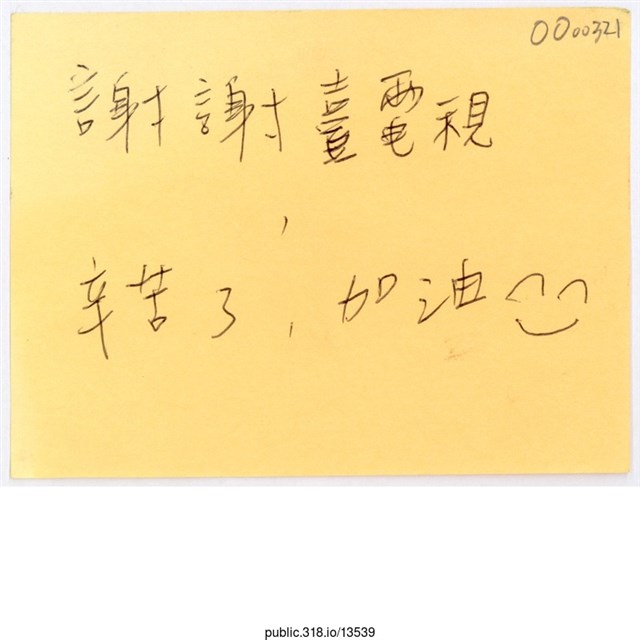 0000321
謝謝臺電視
辛苦了,加油
public.318.io/13539